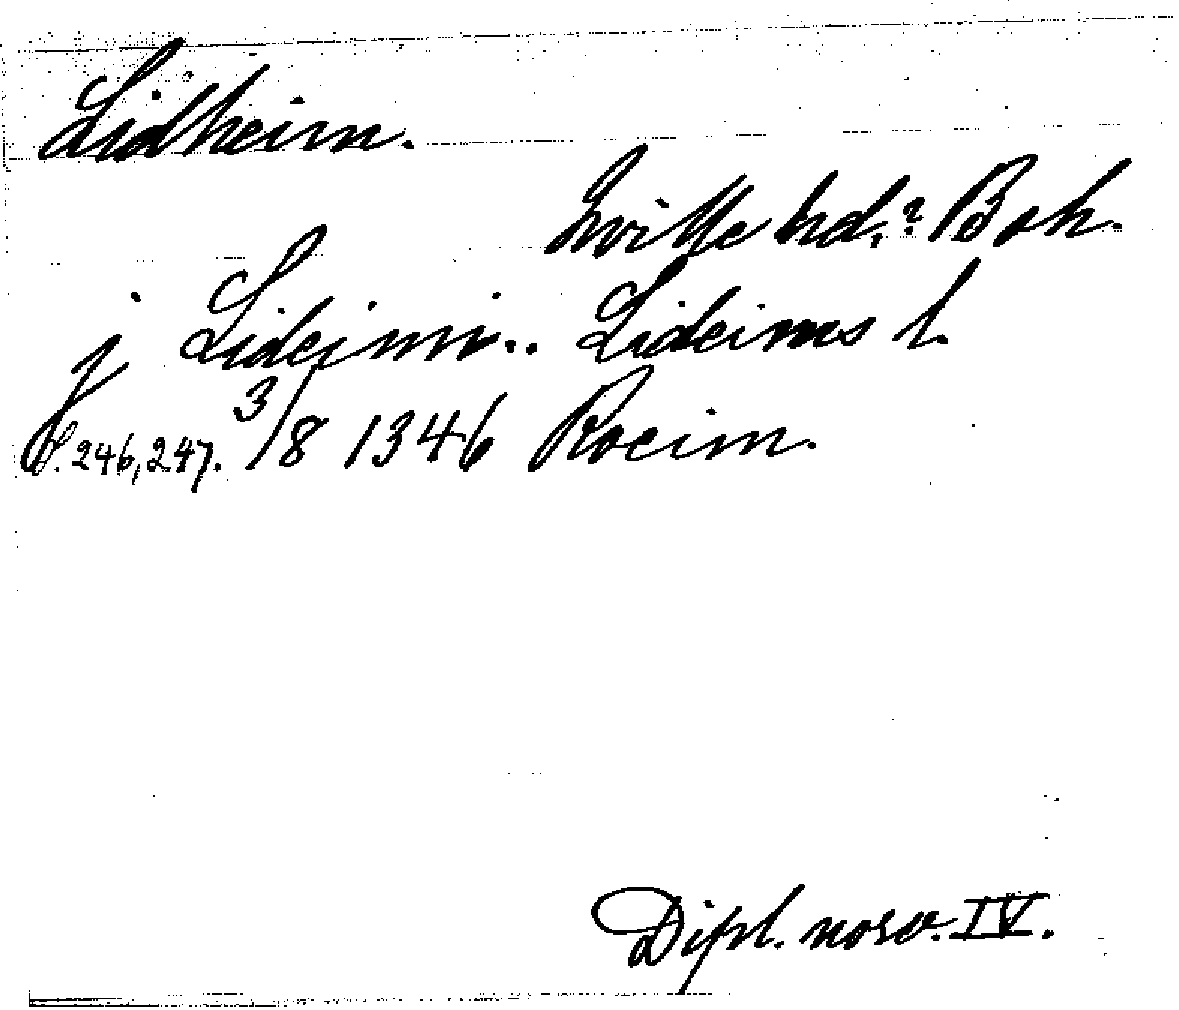 Lidheim.
hd.? Boh.
j Lideimi.. Lideims l.
S. 246, 247. 3/8 1346 Roeim.
Dipl. norv. IV.